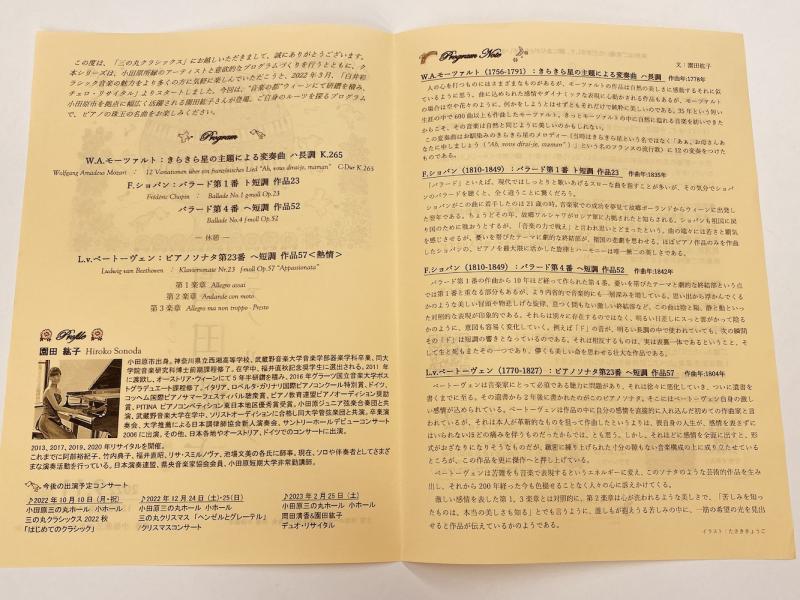 この度は、「三の丸クラシックス」にお越しいただきまして、誠にありがとうございます。
本シリーズは、小田原所縁のアーティストと意欲的なプログラムづくりを行うとともに、ク
ラシック音楽の魅力をより多くの方に気軽に楽しんでいただこうと、2022年3月、「白井彩
チェロ・リサイタル」よりスタートしました。今回は、“音楽の都”ウィーンにて研鑽を積み、
小田原市を拠点に幅広く活躍される園田紘子さんが登場。ご自身のルーツを探るプログラム
で、ピアノの珠玉の名曲をお楽しみください。
Program
W.A.モーツァルト：きらきら星の主題による変奏曲 ハ長調 K.265
Wolfgang Amadeus Mozart : 12 Variationen über ein französisches Lied "Ah, vous dirai-je, maman" C-Dur K.265
F.ショパン：バラード第1番 ト短調 作品23
Frédéric Chopin : Ballade No.1 g-moll Op.23
バラード第4番 ヘ短調 作品52
Ballade No.4 f-moll Op.52
― 休憩 ―
L.v.ベートーヴェン：ピアノソナタ第23番 ヘ短調 作品57<熱情>
Ludwig van Beethoven : Klaviersonate Nr.23 f-moll Op.57 "Appassionata"
第1楽章 Allegro assai
第2楽章 Andante con moto
第3楽章 Allegro ma non troppo - Presto
Profile
園田 紘子 Hiroko Sonoda
小田原市出身。神奈川県立西湘高等学校、武蔵野音楽大学音楽学部器楽学科卒業、同大
学院音楽研究科博士前期課程修了。在学中、福井直秋記念奨学生に選出される。2011年
に渡欧し、オーストリア・ウィーンにて5年半研鑽を積み、2016年グラーツ国立音楽大学ポス
トグラデュエート課程修了。イタリア、ロベルタ・ガリナリ国際ピアノコンクール特別賞、ドイツ、
コッヘム国際ピアノサマーフェスティバル聴衆賞、ピアノ教育連盟ピアノオーディション奨励
賞、PITINA ピアノコンペティション東日本地区優秀賞受賞。小田原ジュニア弦楽合奏団と共
演。武蔵野音楽大学在学中、ソリストオーディションに合格し同大学管弦楽団と共演。卒業演
奏会、大学推薦による日本調律師協会新人演奏会、サントリーホールデビューコンサート
2006に出演。その他、日本各地やオーストリア、ドイツでのコンサートに出演。
2013、2017、2019、2020年リサイタルを開催。
これまでに阿部裕紀子、竹内典子、福井直昭、リサ・スミルノヴァ、池場文美の各氏に師事。現在、ソロや伴奏者としてさまざ
まな演奏活動を行っている。日本演奏連盟、県央音楽家協会会員、小田原短期大学非常勤講師。
今後の出演予定コンサート
♪2022年10月10日(月・祝)
小田原三の丸ホール 小ホール
三の丸クラシックス2022秋
「はじめてのクラシック」
♪2022年12月24日(土)・25日(日)
小田原三の丸ホール 小ホール
三の丸クリスマス「ヘンゼルとグレーテル」
/クリスマスコンサート
♪2023年2月25日(土)
小田原三の丸ホール 小ホール
岡田清香&園田紘子
デュオ・リサイタル
Program Note
文：園田紘子
W.A.モーツァルト (1756-1791)：きらきら星の主題による変奏曲 ハ長調 作曲年:1778年
人の心を打つものにはさまざまなものがあるが、モーツァルトの作品は自然の美しさに感動するそれに似
ているように思う。曲に込められた感情やダイナミックな表現に心動かされる作品もあるが、モーツァルト
の場合は空や花々のように、何かをしようとはせずともそれだけで純粋に美しいのである。35年という短い
生涯の中で600曲以上も作曲したモーツァルト。きっとモーツァルトの中に自然に溢れる音楽を紡いできた
からこそ、その音楽は自然と同じように美しいのかもしれない。
この変奏曲はお馴染みのきらきら星のメロディー（当時はきらきら星という名ではなく「ああ、お母さんあ
なたに申しましょう（"Ah, vous dirai-je, maman"）」という名のフランスの流行歌）に12の変奏をつけた
ものである。
F.ショパン (1810-1849)：バラード第1番 ト短調 作品23 作曲年:1835年
「バラード」といえば、現代ではしっとりと歌いあげるスローな曲を指すことが多いが、その気分でショパ
ンのバラードを聴くと、全く違うことに驚くだろう。
ショパンがこの曲に着手したのは21歳の時。音楽家での成功を夢見て故郷ポーランドからウィーンに出発し
た翌年である。ちょうどその年、故郷ワルシャワがロシア軍に占拠されたと知らされる。ショパンも祖国に戻
り国のために戦おうとするが、「音楽の力で戦え」と言われ思いとどまったという。曲の端々には若さと覇気
を感じさせるが、憂いを帯びたテーマに劇的な終結部が、祖国の悲劇を思わせる。ほぼピアノ作品のみを作曲
したショパンの、ピアノを最大限に活かした旋律とハーモニーは唯一無二の美しさである。
F.ショパン (1810-1849)：バラード第4番 ヘ短調 作品52 作曲年:1842年
バラード第1番の作曲から10年ほど経って作られた第4番。憂いを帯びたテーマと劇的な終結部という点
では第1番と重なる部分もあるが、より内省的で音楽的にも一層深みを増している。思い出から浮かんでくる
かのような美しい冒頭や物悲しげな旋律、息つく間もない激しい終結部など、この曲は陰と陽、静と動といっ
た対照的な表現が印象的である。それらは別々に存在するのではなく、明るい日差しにスっと雲がかって陰る
かのように、意図も容易く変化していく。例えば「F」の音が、明るい長調の中で使われていても、次の瞬間
その「F」は短調の響きとなっているのである。それは相反するものは、実は表裏一体であるということ、そ
して生と死もまたその一つであり、儚くも美しい命を思わせる壮大な作品である。
L.v.ベートーヴェン (1770-1827)：ピアノソナタ第23番 ヘ短調 作品57 作曲年:1804年
ベートーヴェンは音楽家にとって必須である聴力に問題があり、それは徐々に悪化していき、ついに遺書
を書くまでに至る。その遺書から2年後に書かれたのがこのピアノソナタ。そこにはベートーヴェン自身の激し
い感情が込められている。ベートーヴェンは作品の中に自分の感情を直接的に入れ込んだ初めての作曲家と言
われているが、それは本人が革新的なものを狙って作曲したというよりは、彼自身の人生が、感情を表さずに
はいられないほどの痛みを伴うものだったからでは、とも思う。しかし、それほどに感情を全面に出すと、形
式がおざなりになりそうなものだが、緻密に練り上げられた寸分の隙もない音楽構成の上に成り立たせている
ところが、この作品を更に傑作へと押し上げている。
ベートーヴェンは苦難をも音楽で表現するというエネルギーに変え、このソナタのような芸術的作品を生み
出し、それから200年経った今も色褪せることなく人々の心に訴えかけてくる。
激しい感情を表した第1、3楽章とは対照的に、第2楽章は心が洗われるような美しさで、「苦しみを知っ
たものは、本当の美しさも知る」とでも言うように、誰しもが抱えうる苦しみの中に、一筋の希望の光を見出
せると作品が伝えているかのようである。
イラスト：たききりょうこ